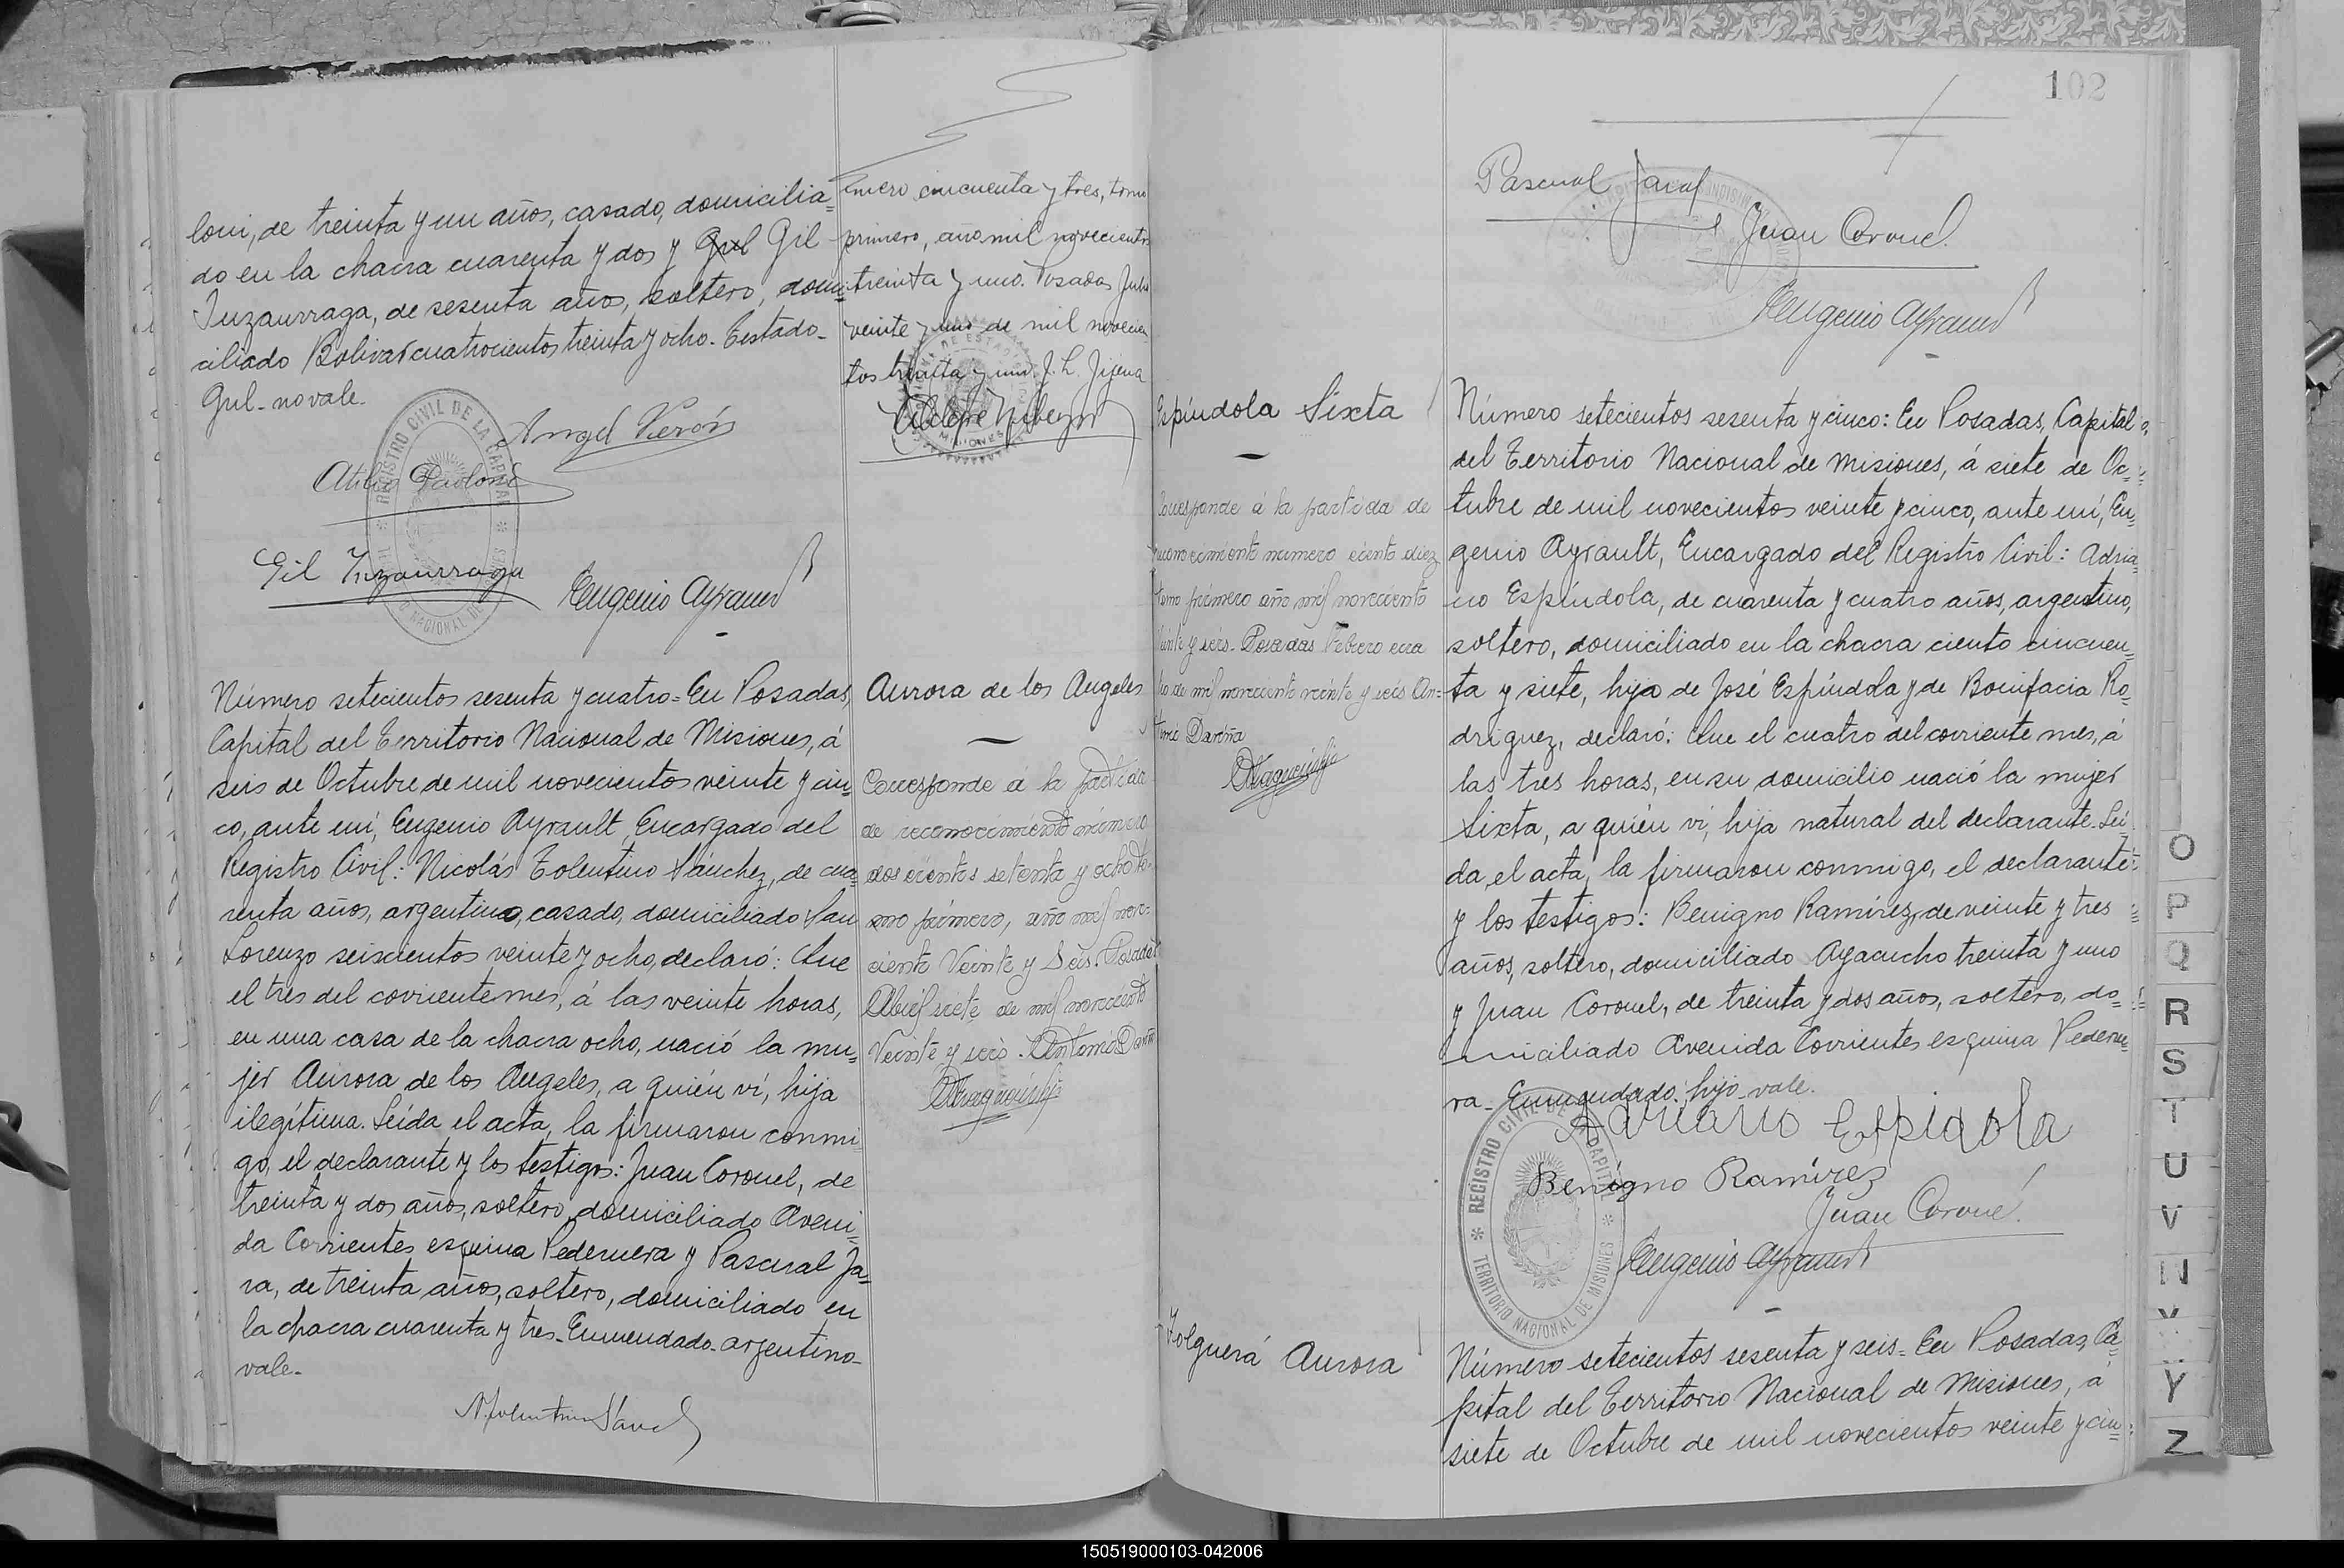 loni, de treinta y un años, casado, domicilia=
do en la chacra cuarenta y dos y Gul Gil
Inzaurraga, de sesenta años, soltero, domi=
ciliado Bolivar cuatrocientos treinta y ocho. Testado-
Gul- no vale.
Angel Verón
Atilio Paoloni
Gil Inzaurraga
Eugenio Ayrault
REGISTRO CIVIL DE LA CAPITAL
mero cincuenta y tres, tomo
primero, año mil novecientos
treinta y uno. Posadas Julio
veinte y uno de mil novecien
tos treinta y uno. J. L. Jijena
Número setecientos sesenta y cuatro= En Posadas,
Capital del Territorio Nacional de Misiones, á
seis de Octubre de mil novecientos veinte y cin=
co, ante mí, Eugenio Ayrault, Encargado del
Registro Civil: Nicolás Tolentino Sánchez, de cua=
renta años, argentino, casado, domiciliado San
Lorenzo seiscientos veinte y ocho, declaró: Que
el tres del corriente mes, á las veinte horas,
en una casa de la chacra ocho, nació la mu=
jer Aurora de los Angeles, a quién ví, hija
ilegítima. Leída el acta, la firmaron conmi=
go, el declarante y los testigos: Juan Coronel, de
treinta y dos años, soltero, domiciliado Aveni=
da Corrientes esquina Pedernera y Pascual Ja=
ra, de treinta años, soltero, domiciliado en
la chacra cuarenta y tres- Enmendado- argentino-
vale-
N. Tolentino Sánch
Aurora de los Angeles
Corresponde á la partida
de reconocimiento número
doscientos setenta y ocho to-
mo primero, año mil nove-
ciento Veinte y Seis. Posadas
Abril siete de mil noveciento
Veinte y seis. Antonio Dariña
102
Pascual Jara
Juan Coronel
Eugenio Ayrault
Espíndola Sixta
Corresponde á la partida de
reconocimiento número ciento diez
tomo primero año mil noveciento
Veinte y seis. Posadas Febrero cua
tro de mil noveciento veinte y seis An=
tonio Dariña
Número setecientos sesenta y cinco: En Posadas, Capital
del Territorio Nacional de Misiones, á siete de Oc=
tubre de mil novecientos veinte y cinco, ante mí, Eu=
genio Ayrault, Encargado del Registro Civil: Adria=
no Espíndola, de cuarenta y cuatro años, argentino,
soltero, domiciliado en la chacra ciento cincuen=
ta y siete, hijo de José Espíndola y de Bonifacia Ro=
dríguez, declaró: Que el cuatro del corriente mes, á
las tres horas, en su domicilio nació la mujer
Sixta, a quién ví, hija natural del declarante. Leí=
da el acta, la firmaron conmigo, el declarante
y los testigos: Benigno Ramírez, de veinte y tres
años, soltero, domiciliado Ayacucho treinta y uno
y Juan Coronel, de treinta y dos años, soltero, do=
miciliado Avenida Corrientes esquina Pederne=
ra- Enmendado: hijo- vale.
Adriano Espidola
Benigno Ramírez
Juan Coronel
Eugenio Ayrault
REGISTRO CIVIL DE LA CAPITAL
TERRITORIO NACIONAL DE MISIONES
Holguera Aurora
Número setecientos sesenta y seis= En Posadas, Ca=
pital del Territorio Nacional de Misiones, á
siete de Octubre de mil novecientos veinte y cin=
O
P
Q
R
S
T
U
V
W
X
Y
Z
150519000103-042006